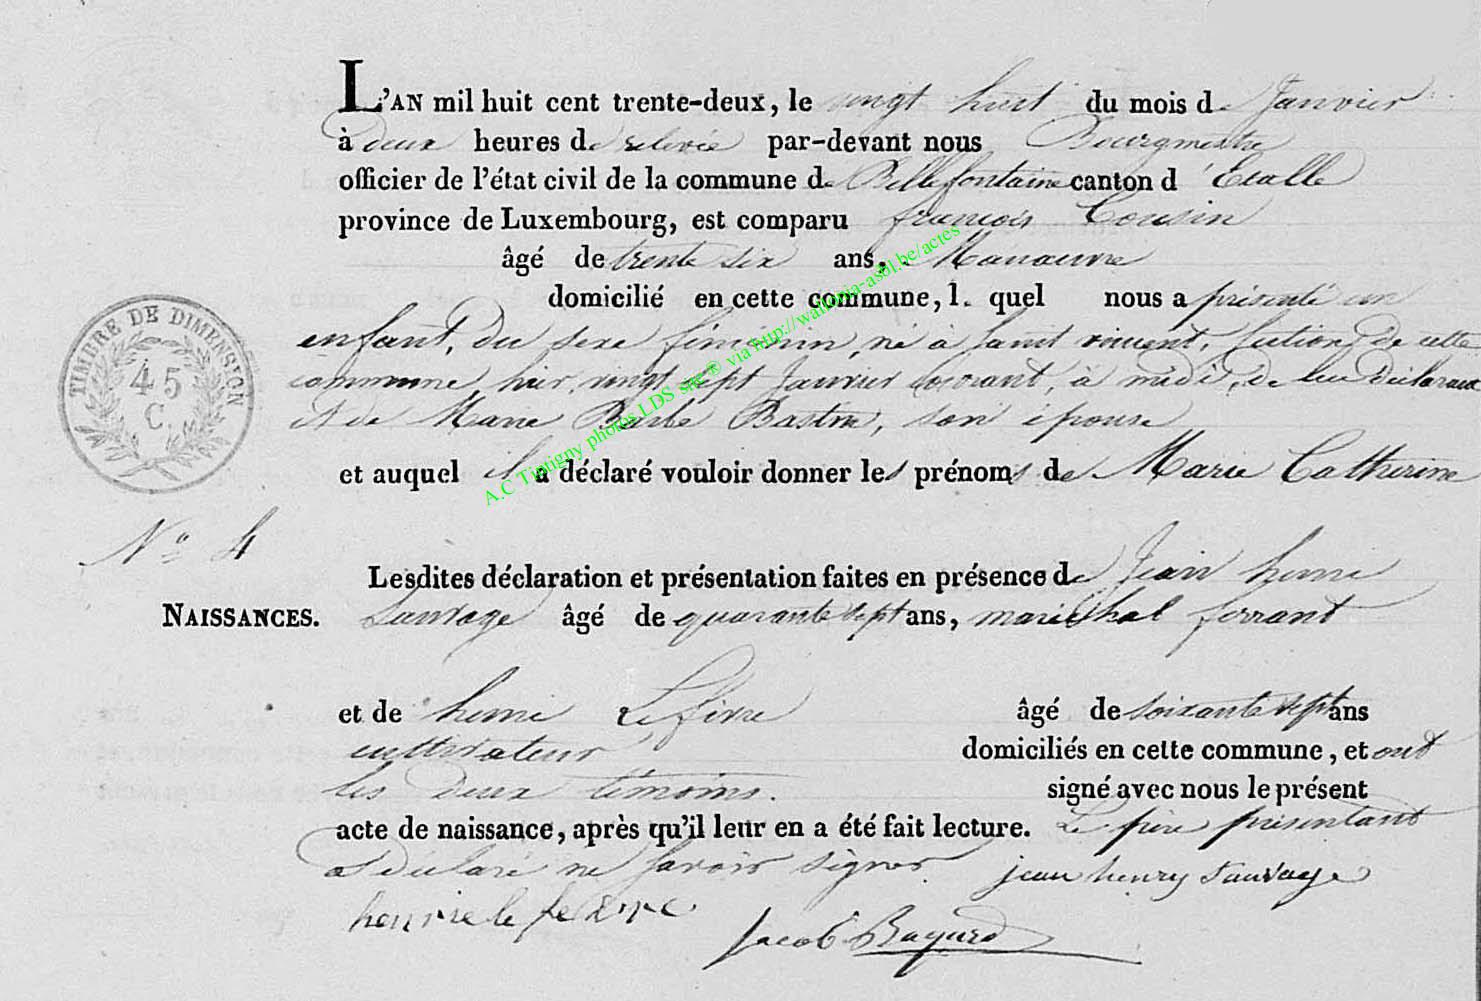 L'AN mil huit cent trente-deux, le vingt huit du mois de Janvier
à deux heures de relevée par-devant nous Bourgmestre
officier de l'état civil de la commune de Bellefontaine canton d'Etalle
province de Luxembourg, est comparu françois Cousin
âgé de trente six ans, Manoeuvre
domicilié en cette commune, l. quel nous a présenté un
enfant, du sexe féminin, né à saint vincent, section de cette
commune, hier, vingt sept Janvier courant, à midi, de lui déclarant
et de Marie Barbe Bastin, son épouse
et auquel il a déclaré vouloir donner les prénoms de Marie Catherine
TIMBRE DE DIMENSION
45
C.
No 4
NAISSANCES.
Lesdites déclaration et présentation faites en présence de Jean henri
Sauvage âgé de quarante sept ans, maréchal ferrant
et de henri Lefevre âgé de soixante sept ans
cultivateur domiciliés en cette commune, et ont
les deux témoins. signé avec nous le présent
acte de naissance, après qu'il leur en a été fait lecture. Le père présentant
a déclaré ne savoir signer. jean henry Sauvage
henrie le fevre
Jacob Bayard
A.C Tintigny photos LDS sac® via http://wallonia-asbl.be/actes